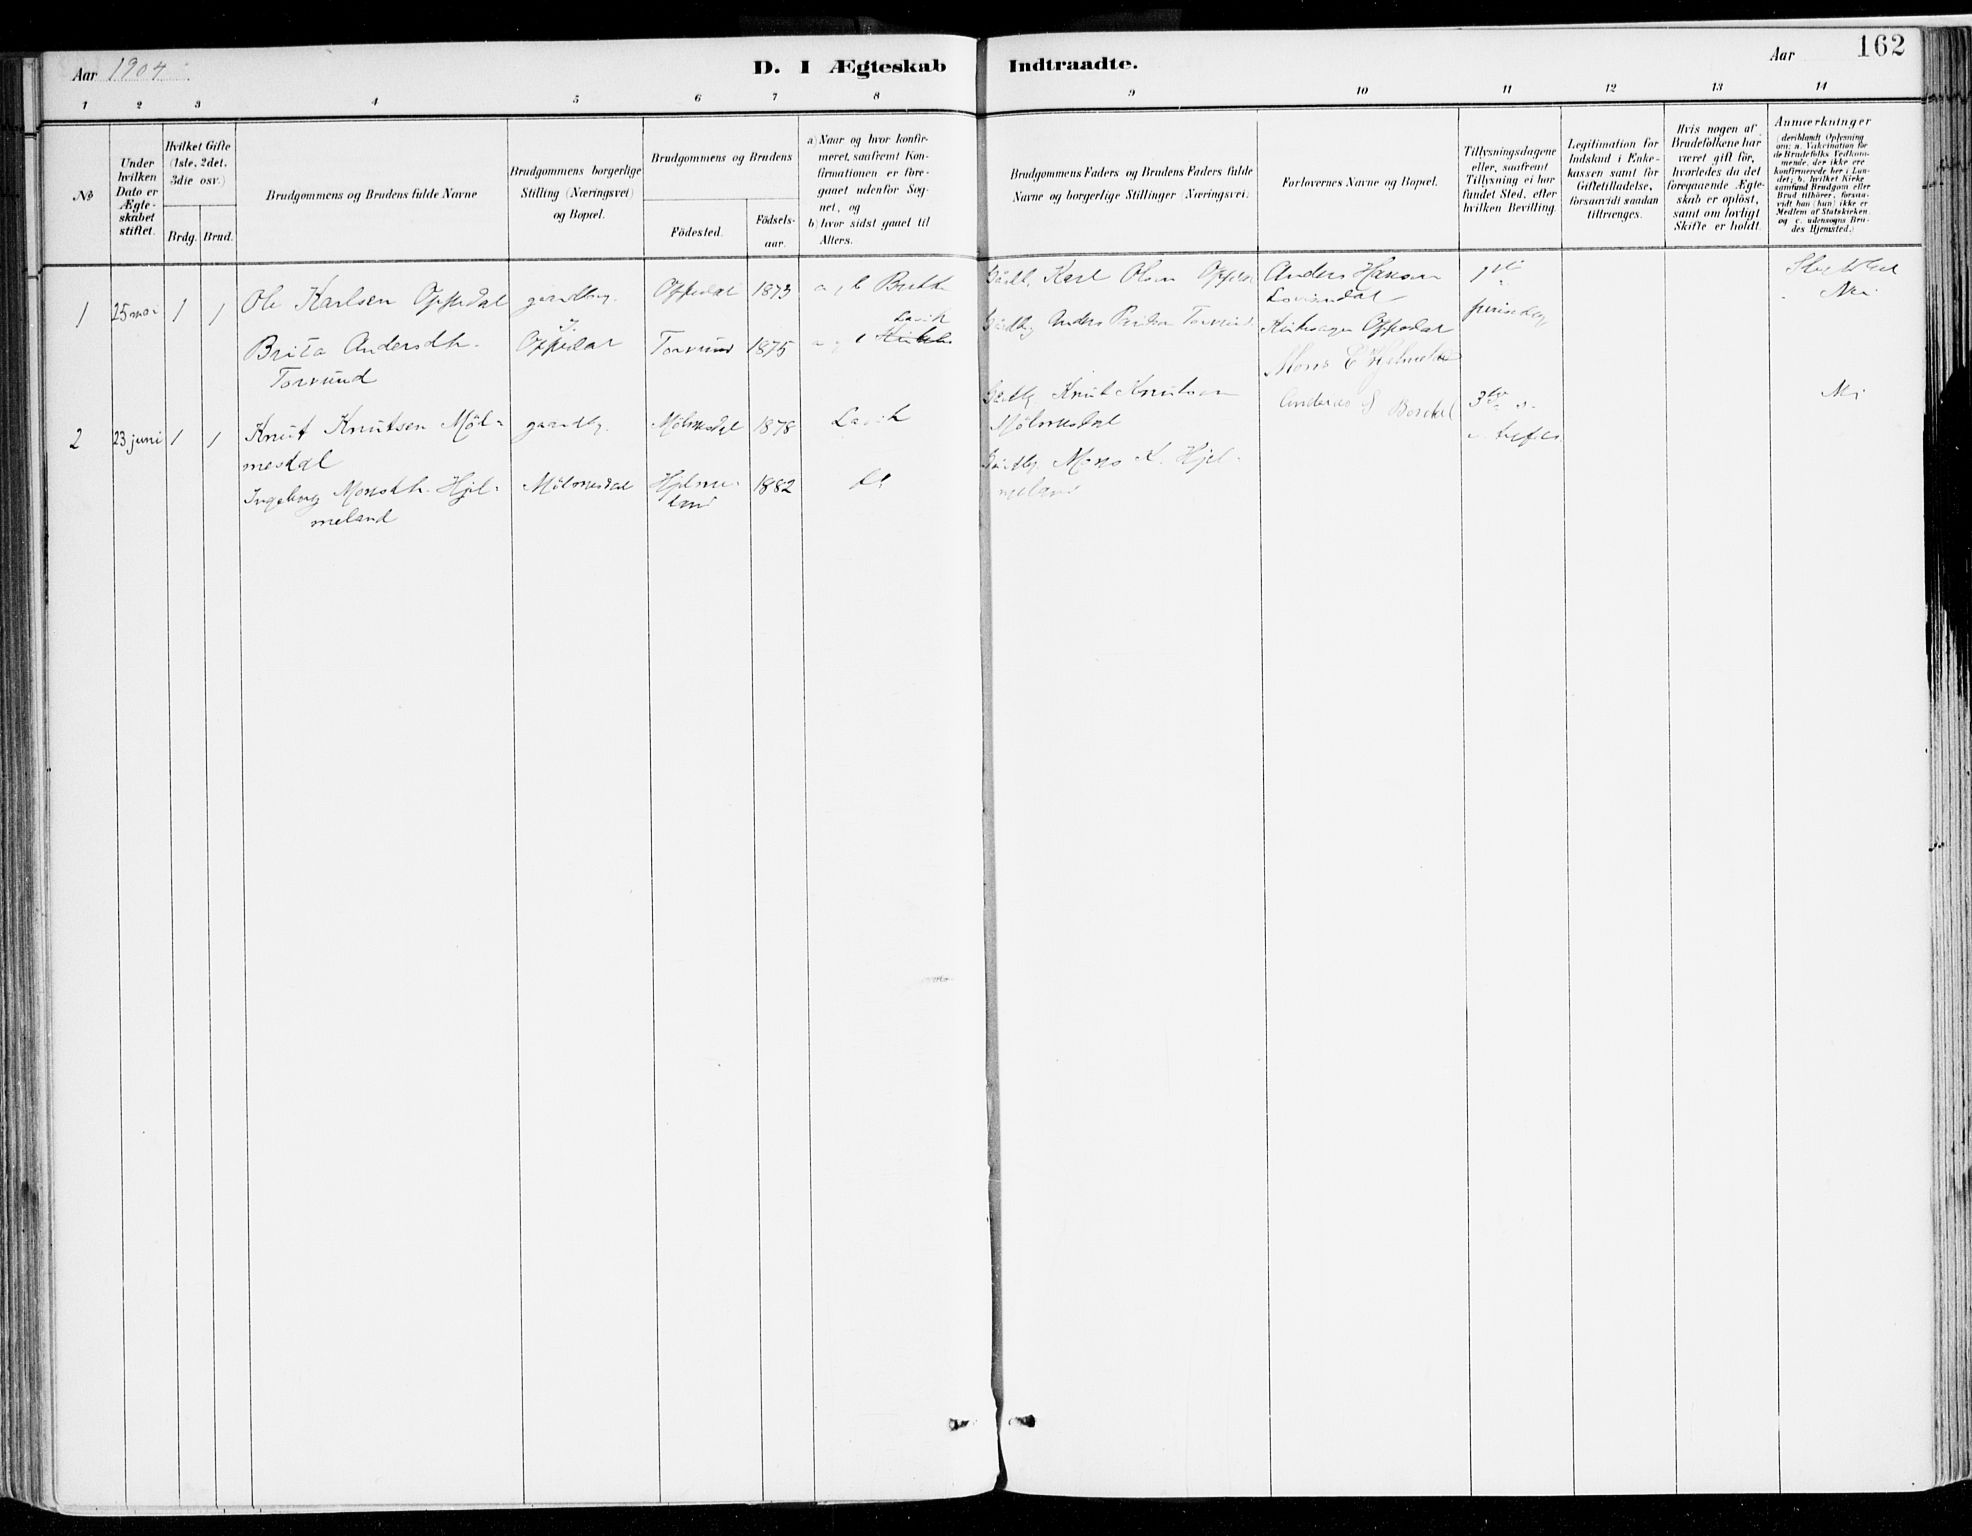 Aar 1904
D. I Ægteskab Indtraadte.
Aar
162
1 2 3 4 5 6 7 8 9 10 11 12 13 14
No
Under hvilken Dato er Ægte-skabet stiftet.
Hvilket Gifte (1ste, 2det, 3die osv.)
Brdg. Brud.
Brudgommens og Brudens fulde Navne
Brudgommens borgerlige Stilling (Næringsvei) og Bopæl.
Brudgommens og Brudens
Födested.
Födsels-aar.
a) Naar og hvor konfir-
meret, saafremt Kon-
firmationen er fore-
gaaet udenfor Sog-
net, og
b) hvor sidst gaaet til
Alters.
Brudgommens Faders og Brudens Faders fulde
Navne og borgerlige Stillinger (Næringsvei).
Forlovernes Navne og Bopæl.
Tillysningsdagene
eller, saafremt
Tillysning ei har
fundet Sted, efter
hvilken Bevilling.
Legitimation for
Indskud i Enke-
kassen samt for
Giftetilladelse,
forsaavidt saadan
tiltrænges.
Hvis nogen af
Brudefolkene har
været gift før,
hvorledes da det
foregaaende Ægte-
skab er oplöst,
samt om lovligt
Skifte er holdt.
Anmærkninger
deriblandt Oplysning
om: a. Vakcination for
de Brudefolks Vedkom-
mende, der ikke ere
konfirmerede her i Lan-
det; b. hvilket Kirke
samfund Brudgom eller
Brud tilhører, forsaa-
vidt han (hun) ikke er
Medlem af Statskirken
og c. udensogns Bru-
des Hjemsted.)
1 25 mai 1 1 Ole Karlsen Oppedal gaardbr. Oppedal 1873 a, b Brekke
Karl Olsen Oppedal
Anders Hansen
1ste
Nei
Brita Andersdtr. Oppedal Torvund 1875 Lavik
Torvund
Anders Torvund
Oppedal
pinsedag
Mons E Hjelmeland
2 23 juni 1 1 Knut Knutsen Möl-
mesdal
gaardbr. Mölmesdal 1878 Lavik
Gårdbr Knut Knutsen
Mölmesdal
Anderas S
3die s.
Nei
Ingeborg Monsdtr. Hjel-
meland
Mölmesdal Hjelme-
land
1882 do
Gårdbr Mons K. Hjel-
meland